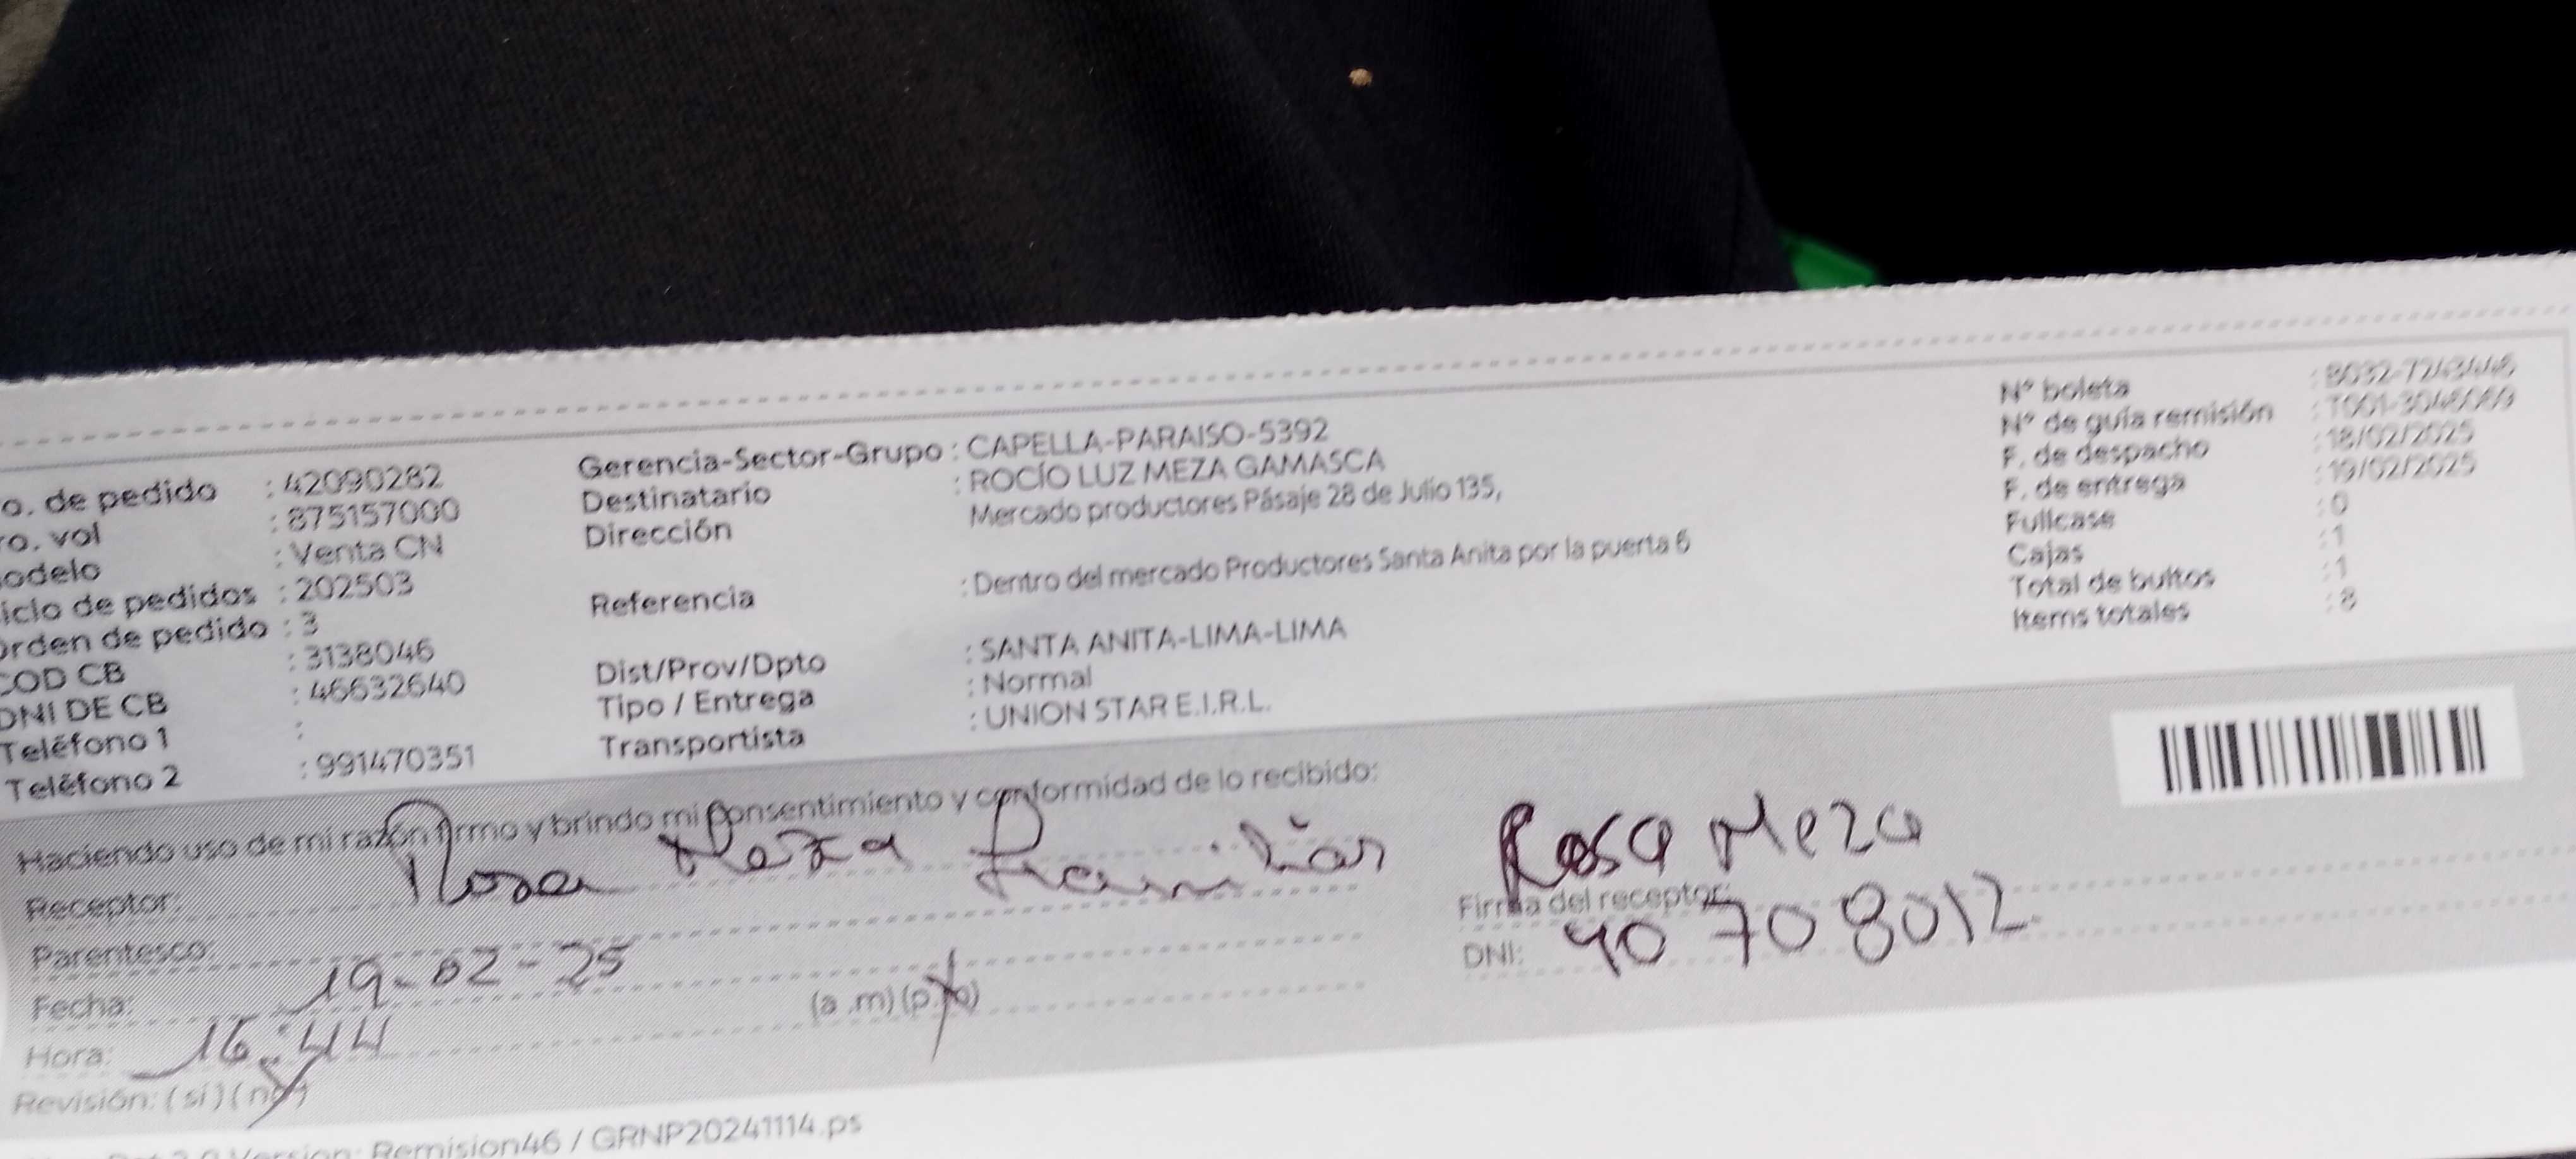 o. de pedido : 42090282
ro. vol : 875157000
odelo : Venta CN
iclo de pedidos : 202503
Orden de pedido : 3
COD CB : 3138046
DNI DE CB : 46632640
Teléfono 1 :
Teléfono 2 : 991470351
Gerencia-Sector-Grupo : CAPELLA-PARAISO-5392
Destinatario : ROCÍO LUZ MEZA GAMASCA
Dirección Mercado productores Pásaje 28 de Julio 135,
Referencia : Dentro del mercado Productores Santa Anita por la puerta 6
Dist/Prov/Dpto : SANTA ANITA-LIMA-LIMA
Tipo / Entrega : Normal
Transportista : UNION STAR E.I.R.L.
N° boleta
N° de guía remisión
F. de despacho : 18/02/2025
F. de entrega : 19/02/2025
Fullcase : 0
Cajas : 1
Total de bultos : 1
Items totales : 8
Haciendo uso de mi razón firmo y brindo mi consentimiento y conformidad de lo recibido:
Receptor: Rosa Meza
Parentesco:
Fecha: 19-02-25
Hora: 16:44 (a .m) (p.m)
Revisión: ( si ) ( no )
Rosa Meza
Firma del receptor:
DNI: 40708012
Version: Remision46 / GRNP20241114.ps